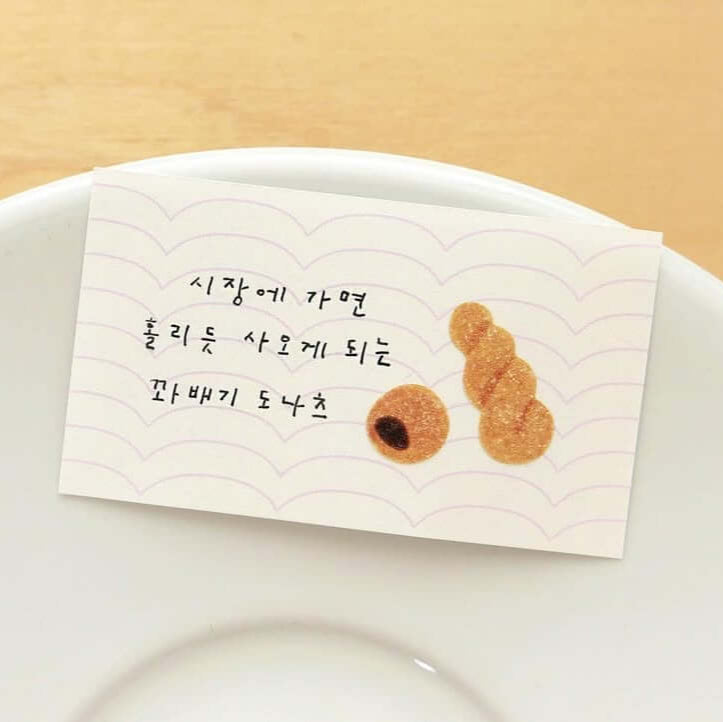 시장에 가면
홀리듯 사오게 되는
꽈배기 도나츠